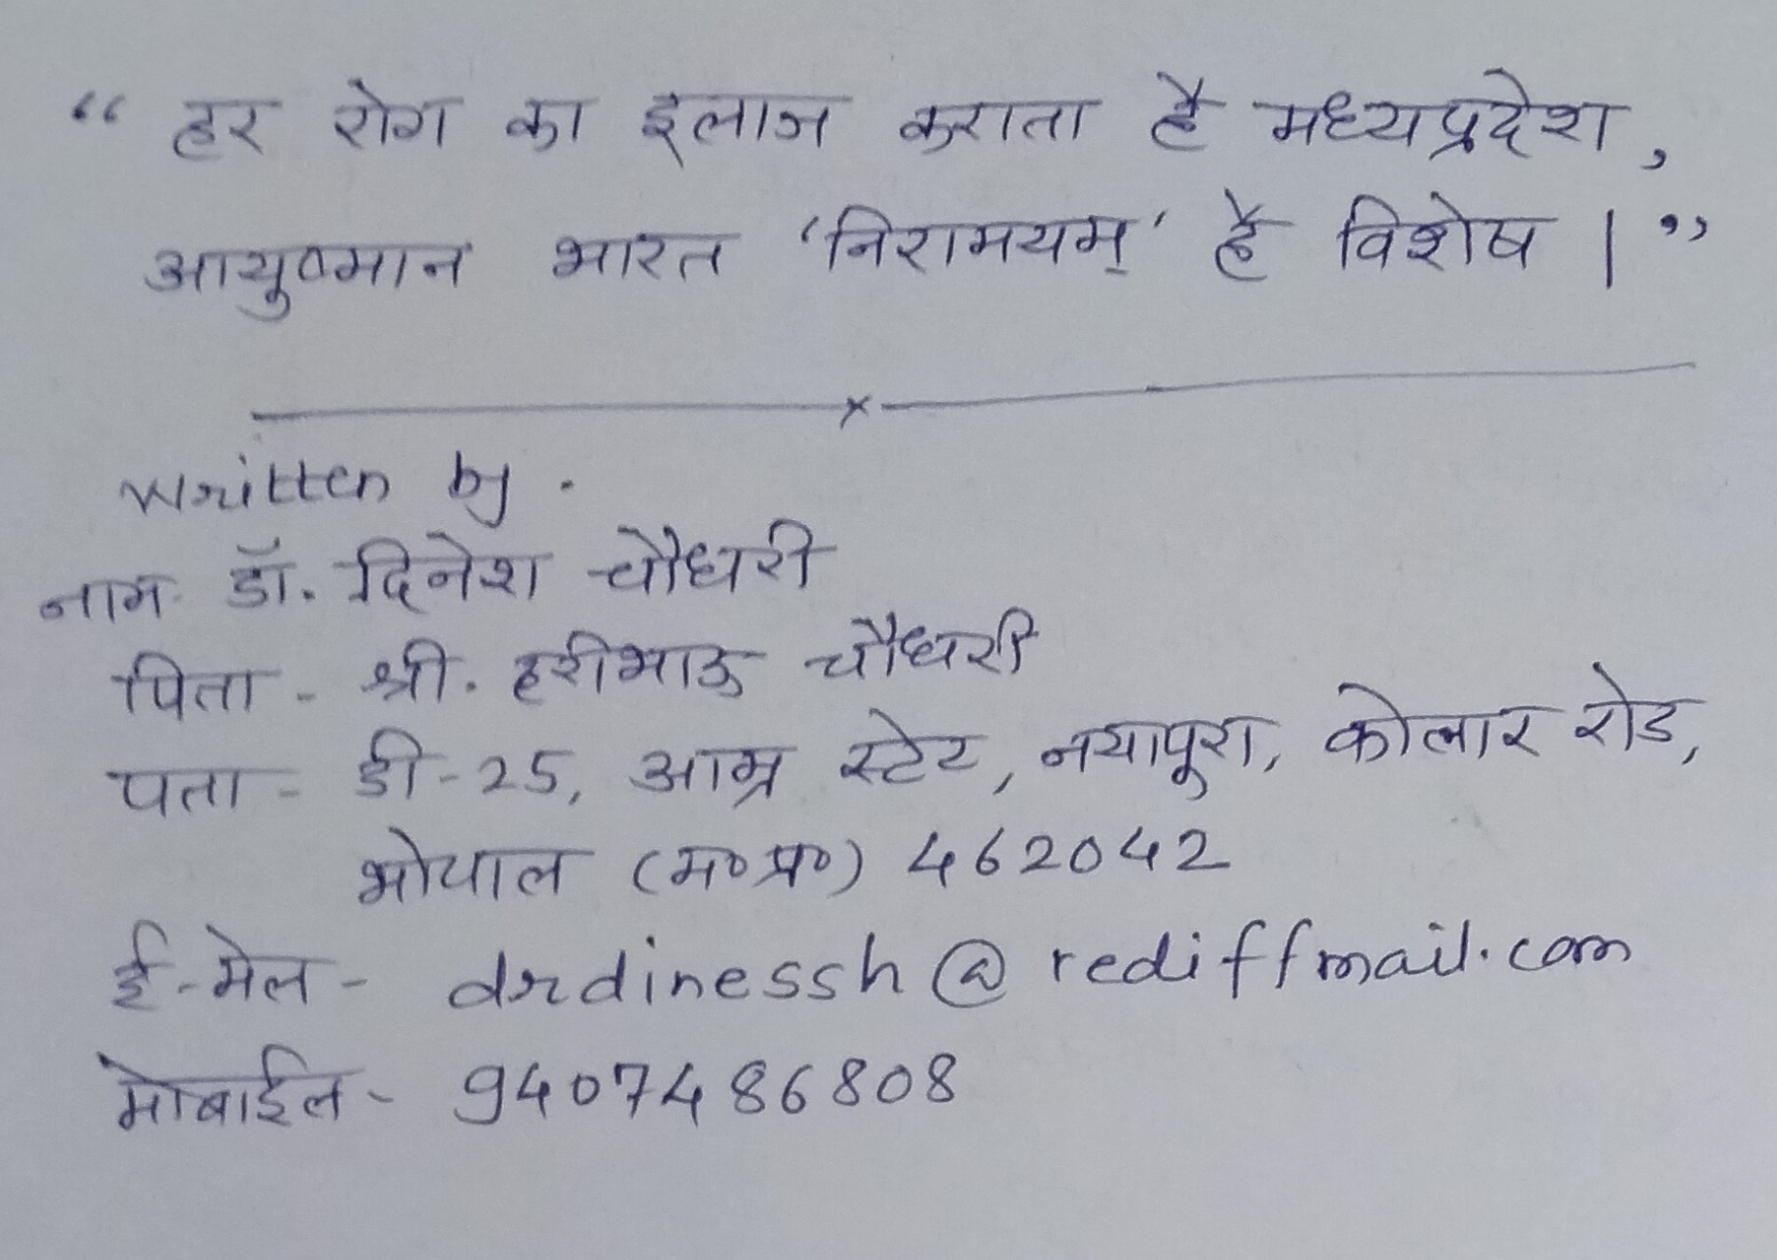 “ हर रोग का इलाज कराता है मध्यप्रदेश,
आयुष्मान भारत ‘निरामयम्’ है विशेष |”
Written by .
नाम- डॉ. दिनेश चौधरी
पिता - श्री. हरीभाऊ चौधरी
पता - डी-25, आम्र स्टेट, नयापूरा, कोलार रोड,
भोपाल (म०प्र०) 462042
ई-मेल - drdinessh@rediffmail.com
मोबाईल - 9407486808